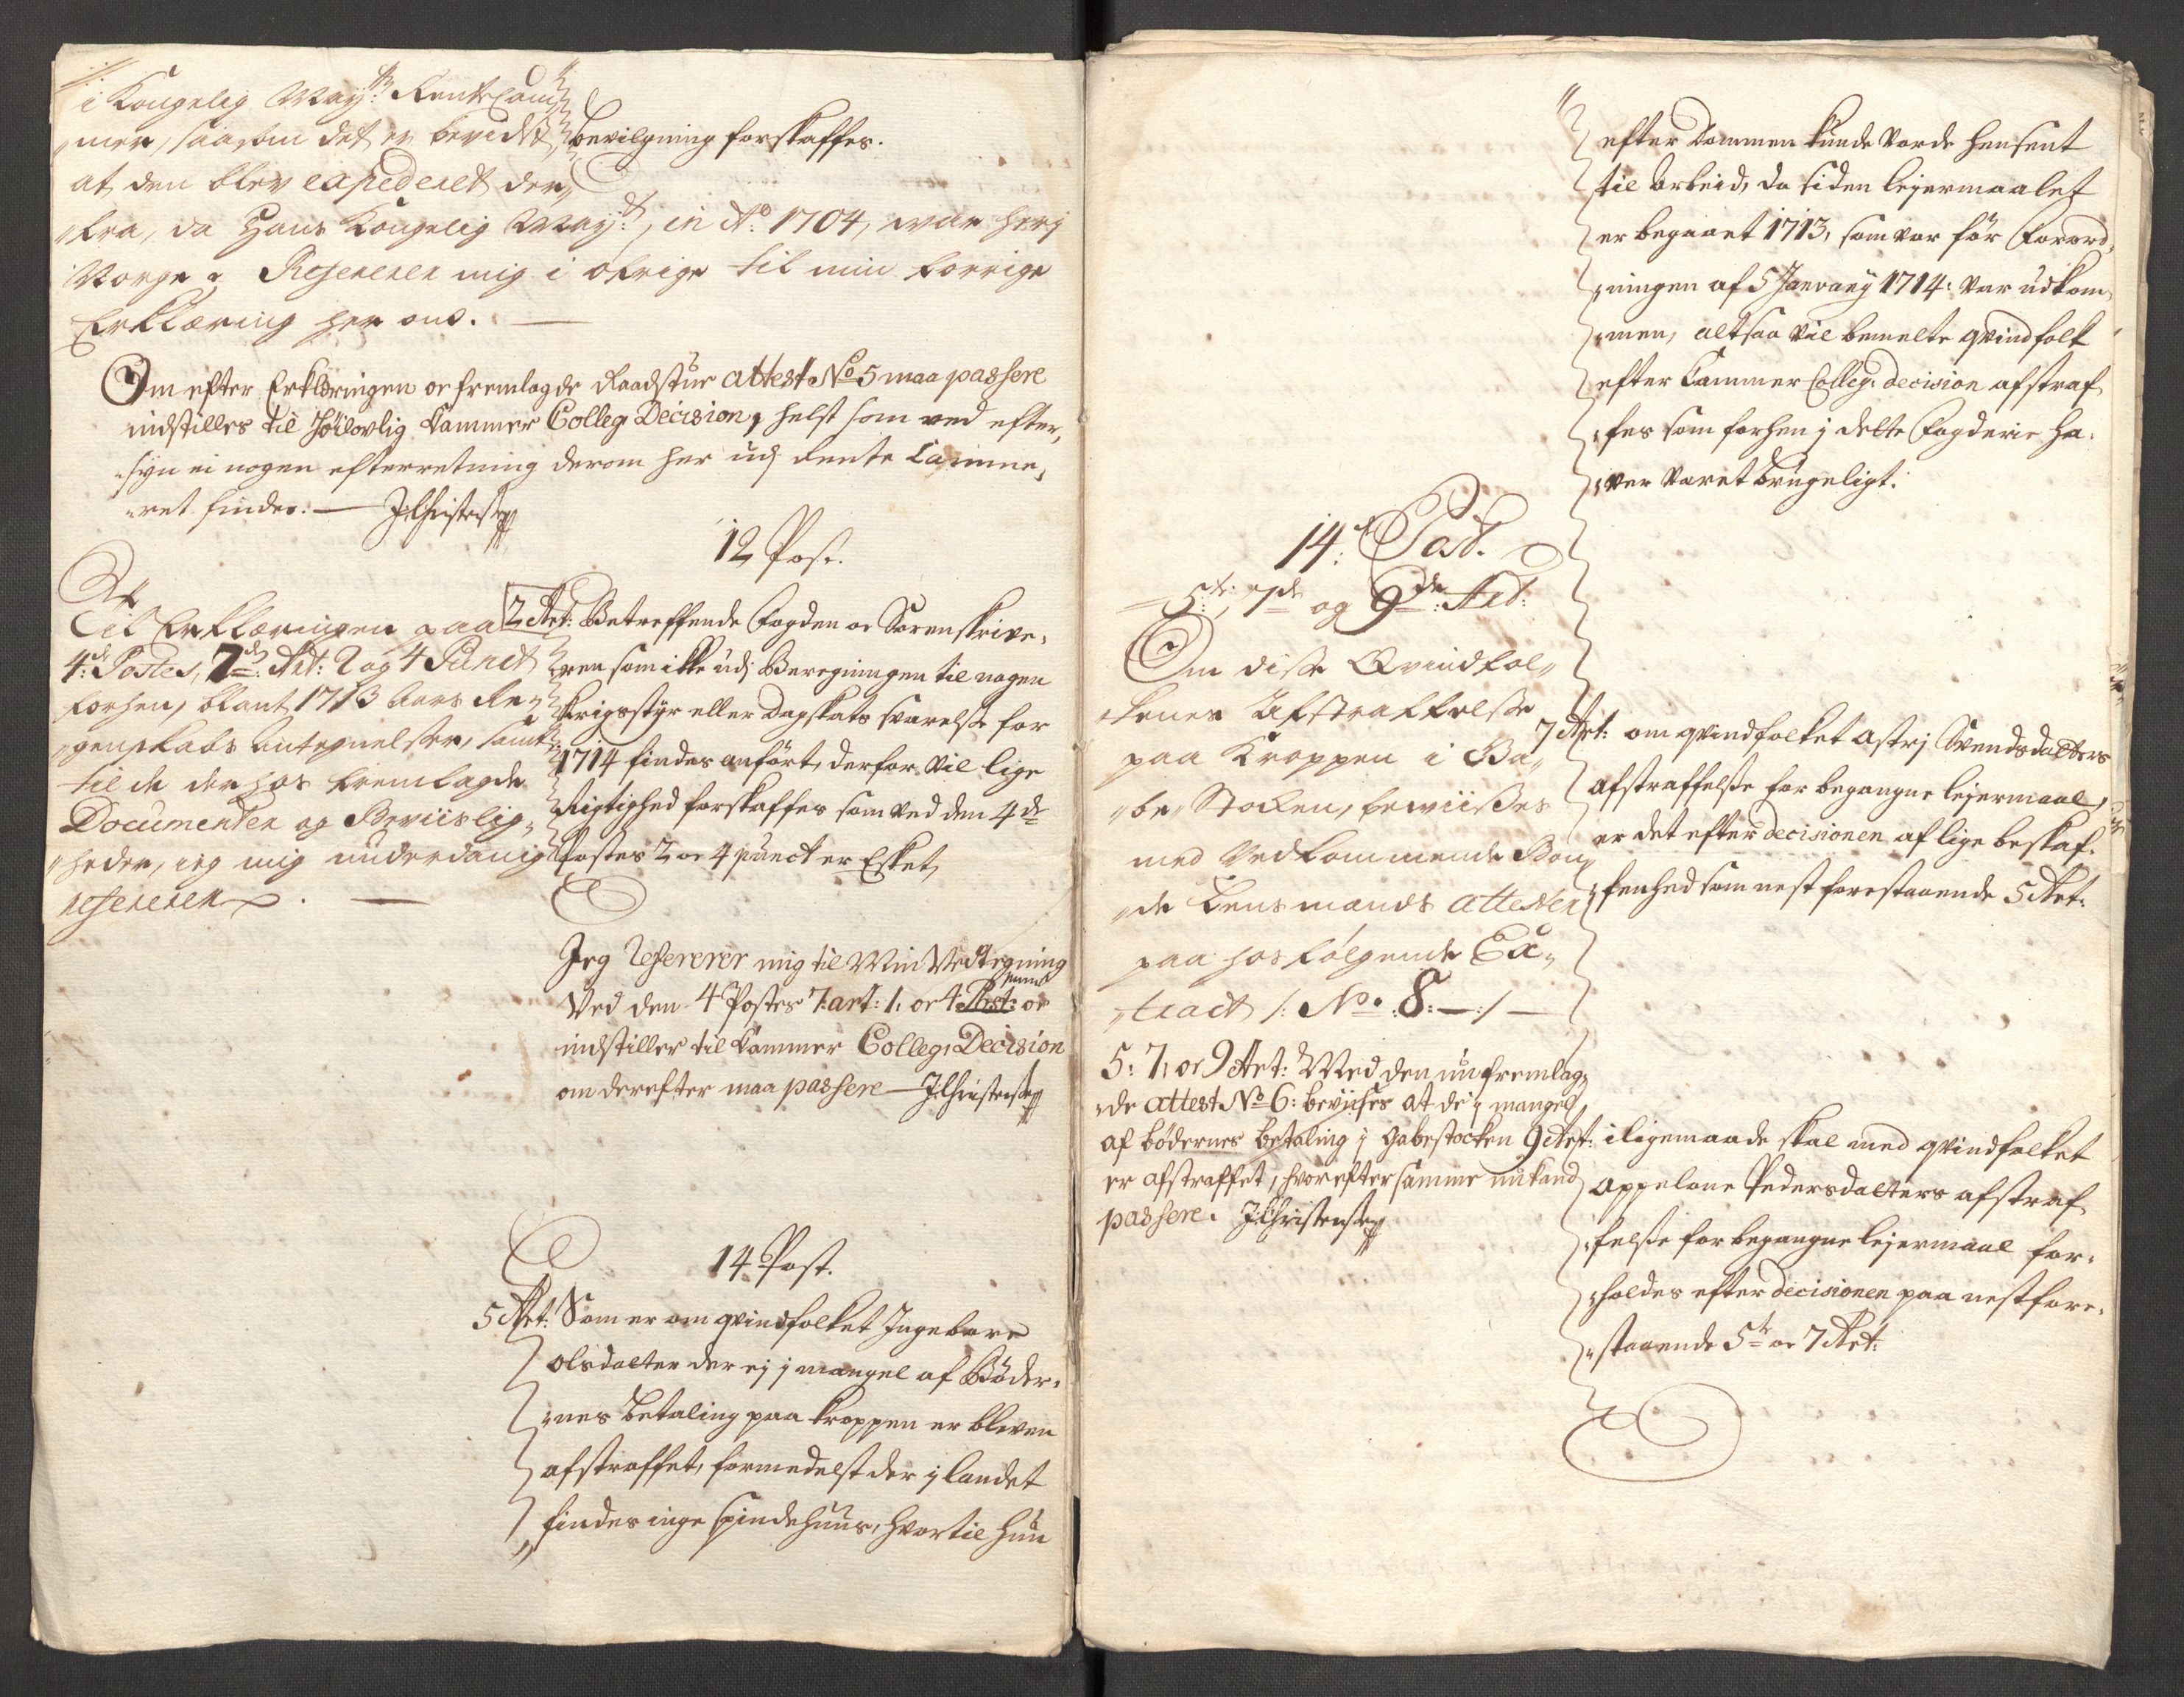 i Kongelig Mayts: RenteCam„
„mer, saasom det er beviidst,
at den blev expederet der„
„fra, da Hans Kongelig Mayt:, in Ao: 1704, var her j
Norge. Refererer mig i øfrige til min forrige
Erklæring her om.
bevilgning forskaffes.
Om efter Erkleringen oc fremlagde Raadstue attest No 5 maa passere
indstilles til Höilovlig Cammer Colleg: Decision, helst som ved efter„
„syn ei nogen efterretning derom her udj Rente Camme„
„ret findes. JChristensen
12 Post.
Til Erklæringen paa
4de Postes, 7de Art: 2 og 4 Punct
forhen, blant 1713 Aars Re„
„genskabs Antegnelser, samt
til de der hos fremlagde
Documenter og Beviislig„
„heder, ieg mig underdanig
refererer.
2 Art: Betreffende Fogden oc Sorenskrive„
„ren som ikke udj Beregningen til nogen
Krigsstyr eller Dagskats svarelse for
1714 findes anfört, derfor vil lige
Rigtighed forskaffes som ved den 4de
Postes 2 oc 4 punct er Esket,
Jeg Refererer mig til Min Vedtegning
Ved den 4 Postes 7: art: 1. oc 4 Post: punct oc
indstiller til Cammer Colleg: Decision
om derefter maa passere JChristensen
14 Post.
5 Art: Som er om qvindfolket Ingebore
Olsdatter der ej j mangel af Böder„
„nes Betaling paa kroppen er bleven
afstraffet, formedelst der j landet
findes inge spindehuus, hvortil hun
efter Dommen kunde vorde hensent
til Arbeid, da siden lejermaalet
er begaaet 1713, som var för Forord„
„ningen af 5 Janvary 1714: var udkom„
„men, altsaa vil bemelte qvindfolk
efter Cammer Colleg: decision afstraf„
„fes som forhen j dette Fogderie ha„
„ver varet brugeligt.
14de Post.
5te, 7de og 9de Art:
Om disse Qvindfol„
„kenes Afstraffelse
paa Kroppen i Ga„
„be Stocken, beviises
med Vedkommende Bon„
„de Lensmands Attester
paa hosfølgende Ex„
„tract /: No: 8: :/
5: 7: oc 9 Art: Med den nu fremlag„
„de attest No 6: beviises at de j mangel
af bödernes betaling j Gabestocken
er afstraffet, hvorefter samme nu kand
passere. JChristensen
7 Art: om qvindfolket Astrj Svendsdatters
afstraffelse for begangne lejermaal,
er det efter decisionen af lige beskaf„
„fenhed som nest forestaaende 5 Art:
9 Art: iligemaade skal med qvindfolket
Appelone Pedersdatters afstraf„
„felse for begangne lejermaal for„
„holdes efter decisionen paa nestfore„
„staaende 5te oc 7 Art: